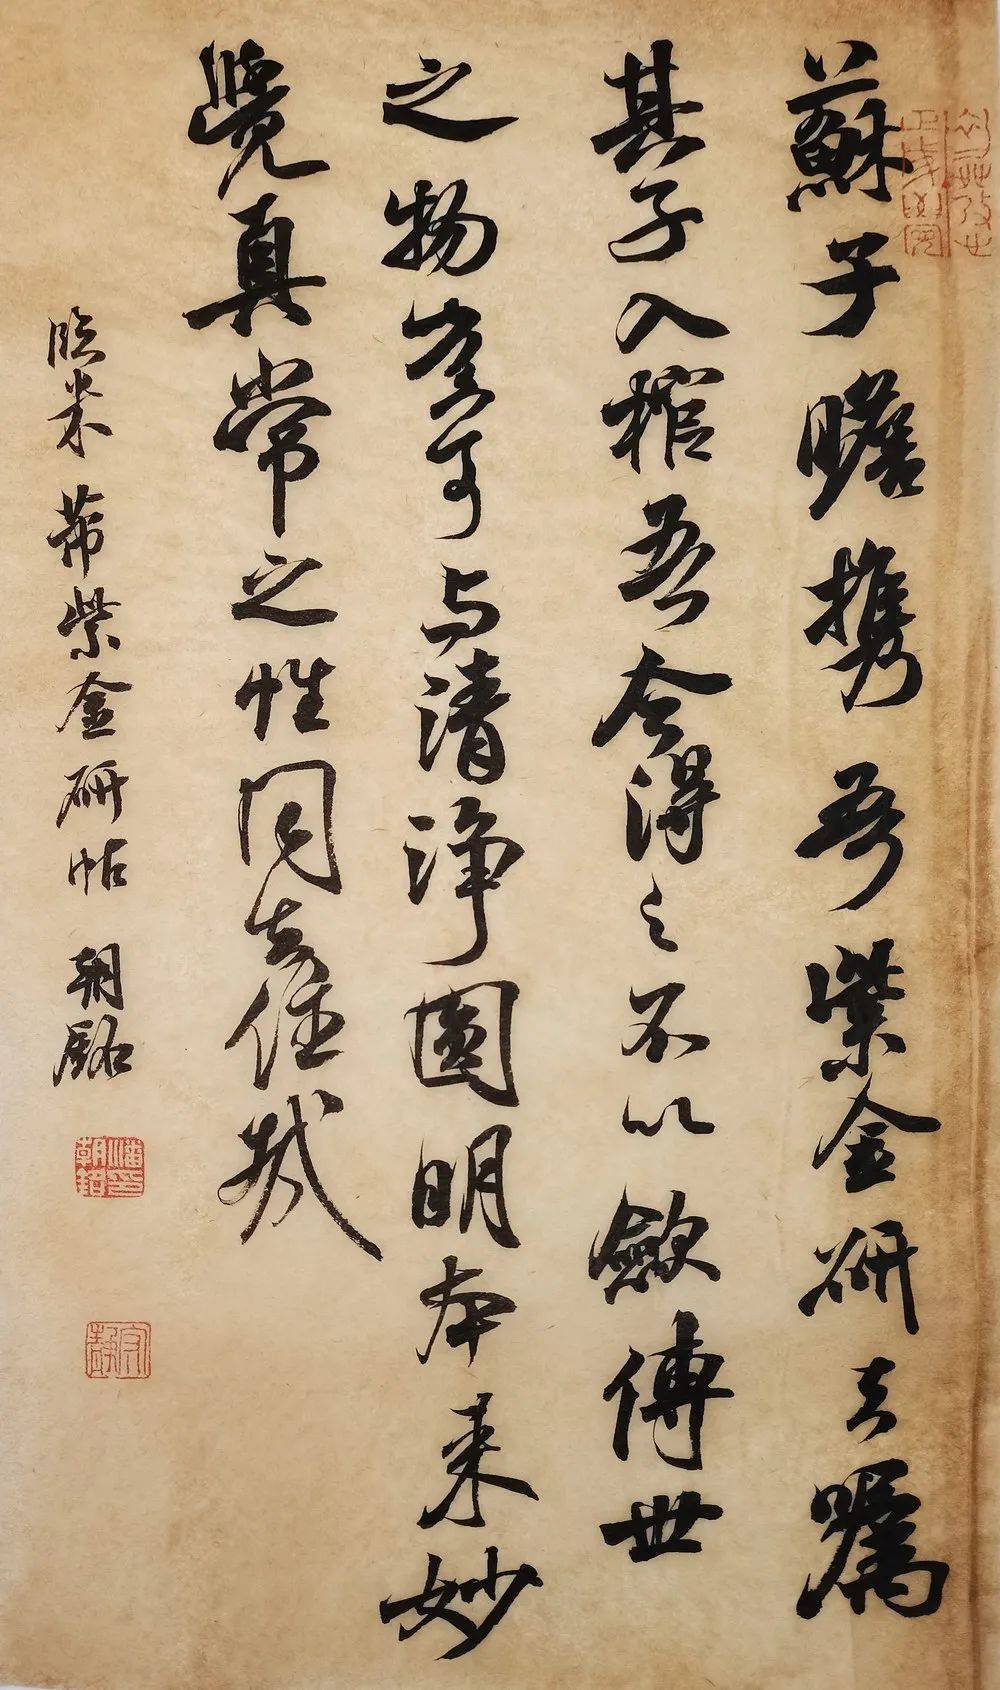 蘇子瞻携吾紫金研去嘱
其子入棺吾今得之不以斂傳世
之物豈可与清淨圓明本来妙
覺真常之性同去住哉
臨米芾紫金研帖 朝銘
潘朝銘印